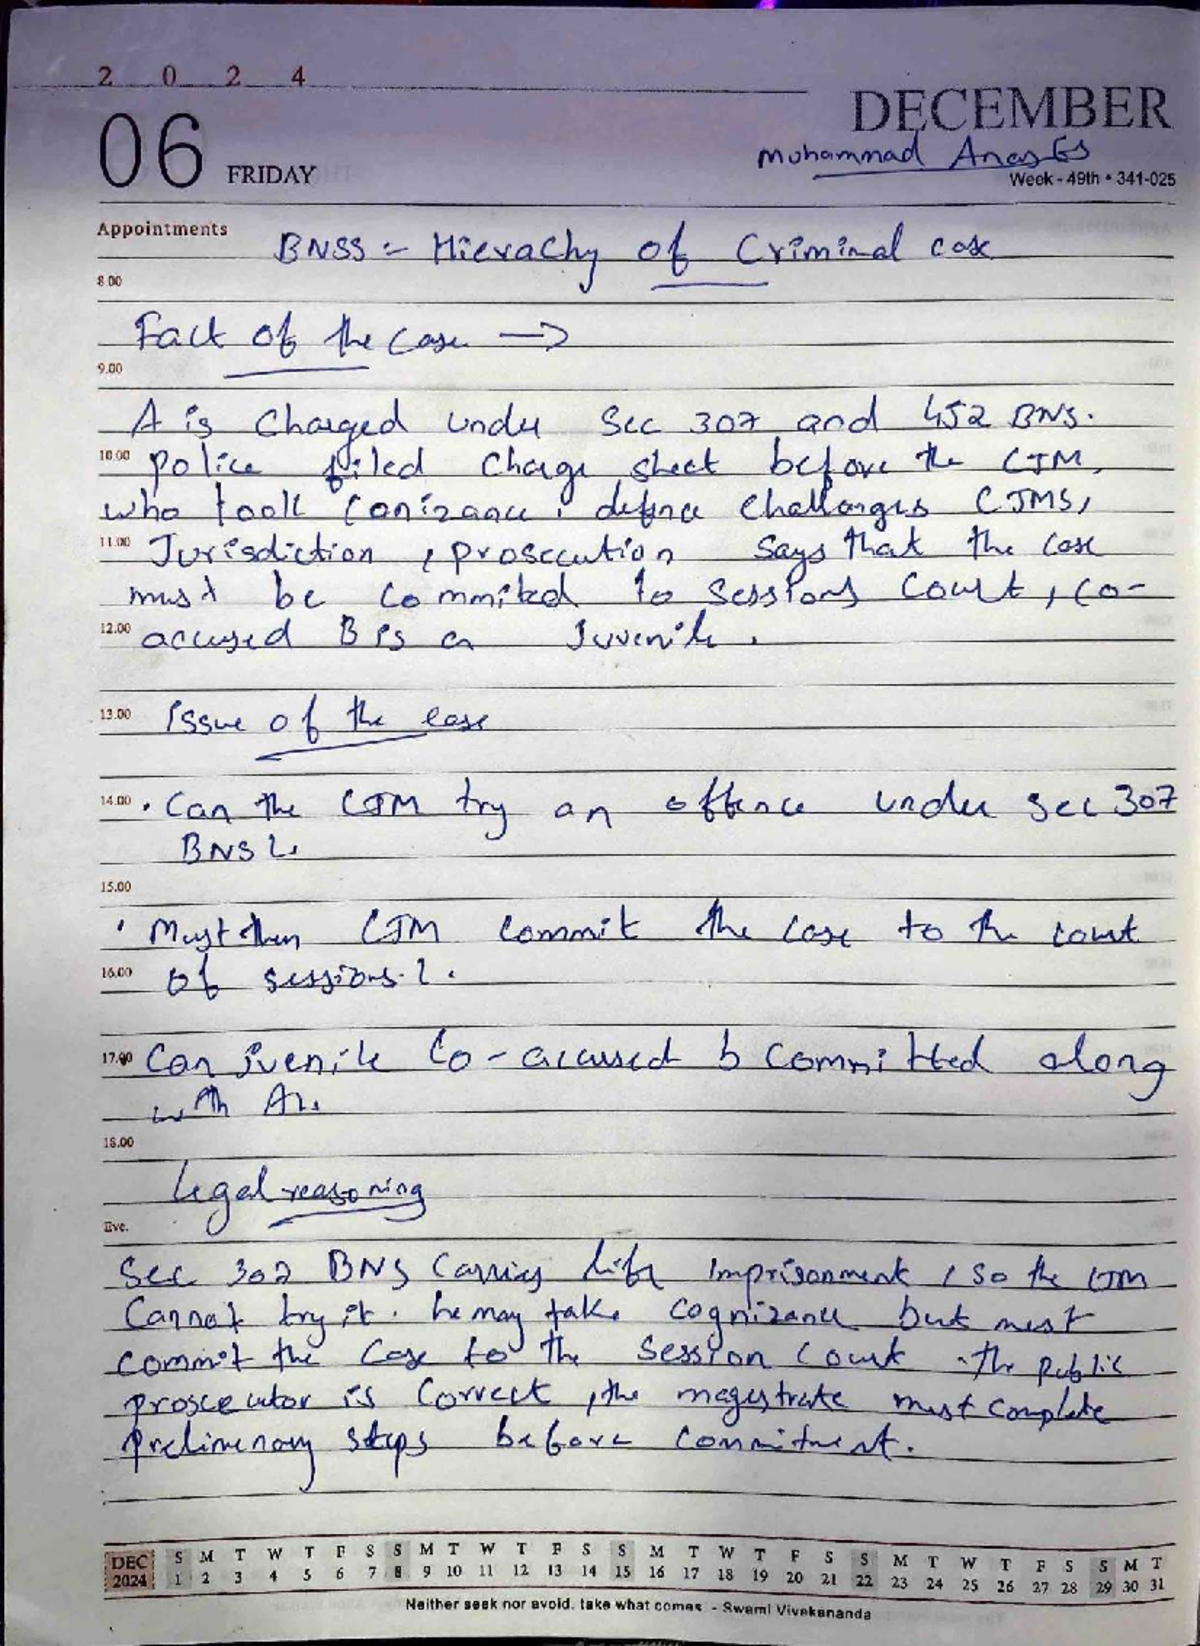 2 0 2 4
DECEMBER
06 FRIDAY
Muhammad Anas Es
Week - 49th • 341-025
Appointments
BNSS :- Hierachy of Criminal case
8.00
Fact of the Case →
9.00
A is Charged under Sec 307 and 452 BNS.
10.00 police filed charge sheet before the CJM,
who took Conizance. defince challanges CJMS,
11.00 Jurisdiction, prosecution says that the case
must be Commited to Sessions Court, co-
12.00 accused B is a Juvenile.
13.00 Issue of the case
14.00 . Can the CJM try an offence under Sec 307
BNS ?.
15.00
' Must then CJM commit the case to the court
16.00 of sessions. ?.
17.00 Can juvenile Co-accused b committed along
with A?.
18.00
Legal reasoning
Eve.
Sec 307 BNS Carries life Imprisonment, so the CJM
Cannot try it. he may take cognizance but must
commit the Case to the Session Court. The public
proscecutor is Correct, the magestrate must complete
prelimenary steps before commitment.
DEC S M T W T F S S M T W T F S S M T W T F S S M T W T F S S M T
2024 1 2 3 4 5 6 7 8 9 10 11 12 13 14 15 16 17 18 19 20 21 22 23 24 25 26 27 28 29 30 31
Neither seek nor avoid, take what comes - Swami Vivekananda